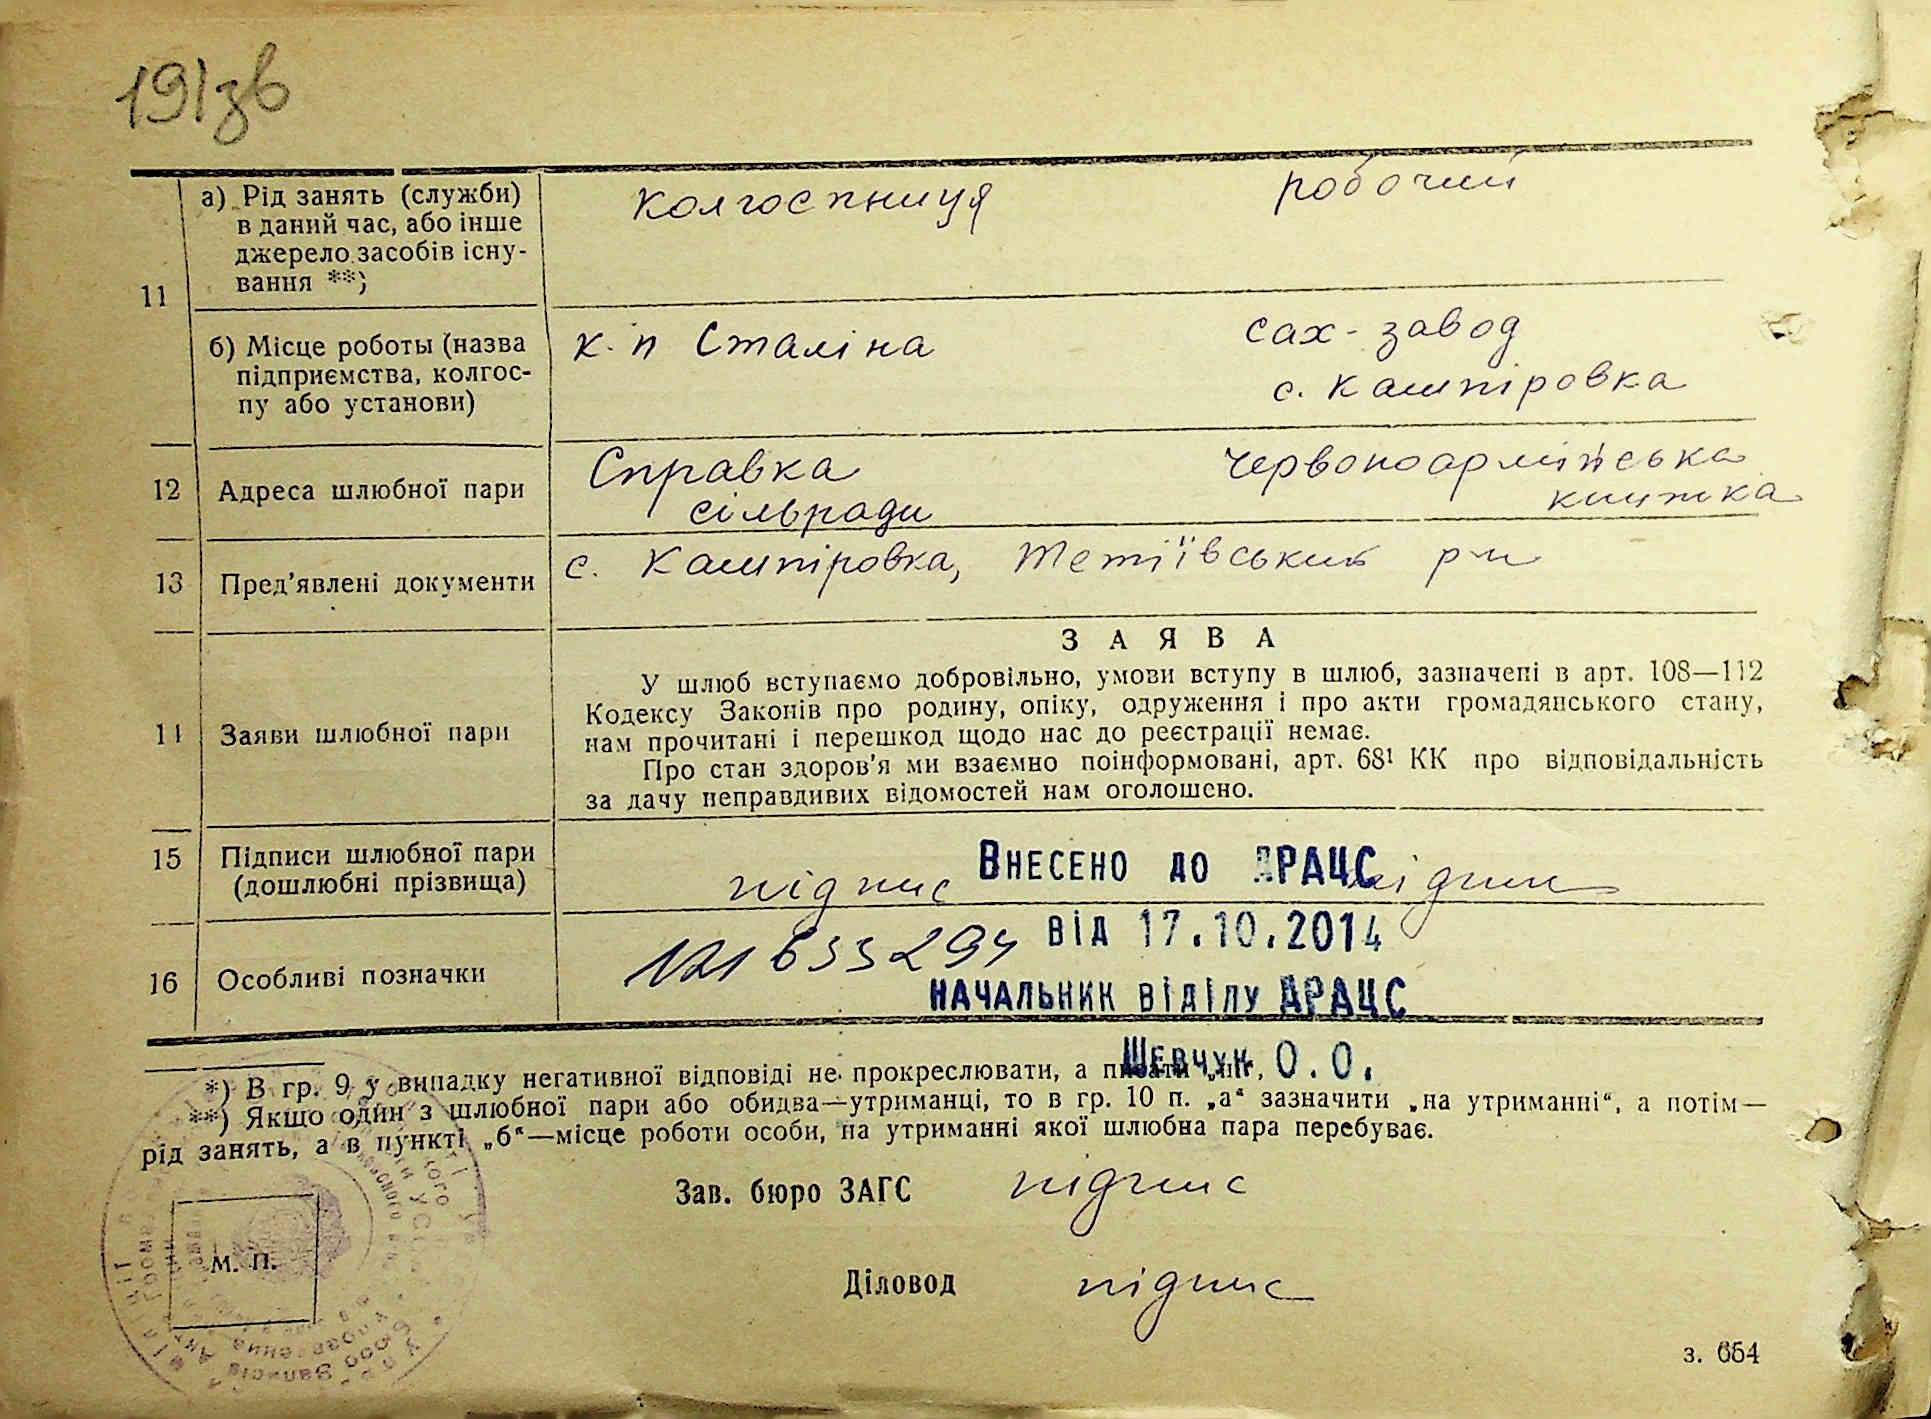 191зв
а) Рід занять (служби)
в даний час, або інше
джерело засобів існу-
вання **)
колгоспниця
робочий
11
б) Місце роботы (назва
підприємства, колгос-
пу або установи)
к-п Сталіна
сах-завод
с. Кашпіровка
12
Адреса шлюбної пари
Справка
сільради
Червоноармійська
книжка
13
Пред'явлені документи
с. Кашпіровка, Тетіївський р-н
14
Заяви шлюбної пари
ЗАЯВА
У шлюб вступаємо добровільно, умови вступу в шлюб, зазначені в арт. 108—112
Кодексу Законів про родину, опіку, одруження і про акти громадянського стану,
нам прочитані і перешкод щодо нас до реєстрації немає.
Про стан здоров'я ми взаємно поінформовані, арт. 68¹ КК про відповідальність
за дачу неправдивих відомостей нам оголошено.
15
Підписи шлюбної пари
(дошлюбні прізвища)
підпис
Внесено до ДРАЦС
підпис
16
Особливі позначки
від 17.10.2014
начальник відділу ДРАЦС
Шевчук О.О.
*) В гр. 9 у випадку негативної відповіді не прокреслювати, а писати „ні“,
**) Якщо один з шлюбної пари або обидва—утриманці, то в гр. 10 п. „а“ зазначити „на утриманні“, а потім—
рід занять, а в пункті „б“—місце роботи особи, на утриманні якої шлюбна пара перебуває.
Зав. бюро ЗАГС
підпис
М. П.
Діловод
підпис
з. 654